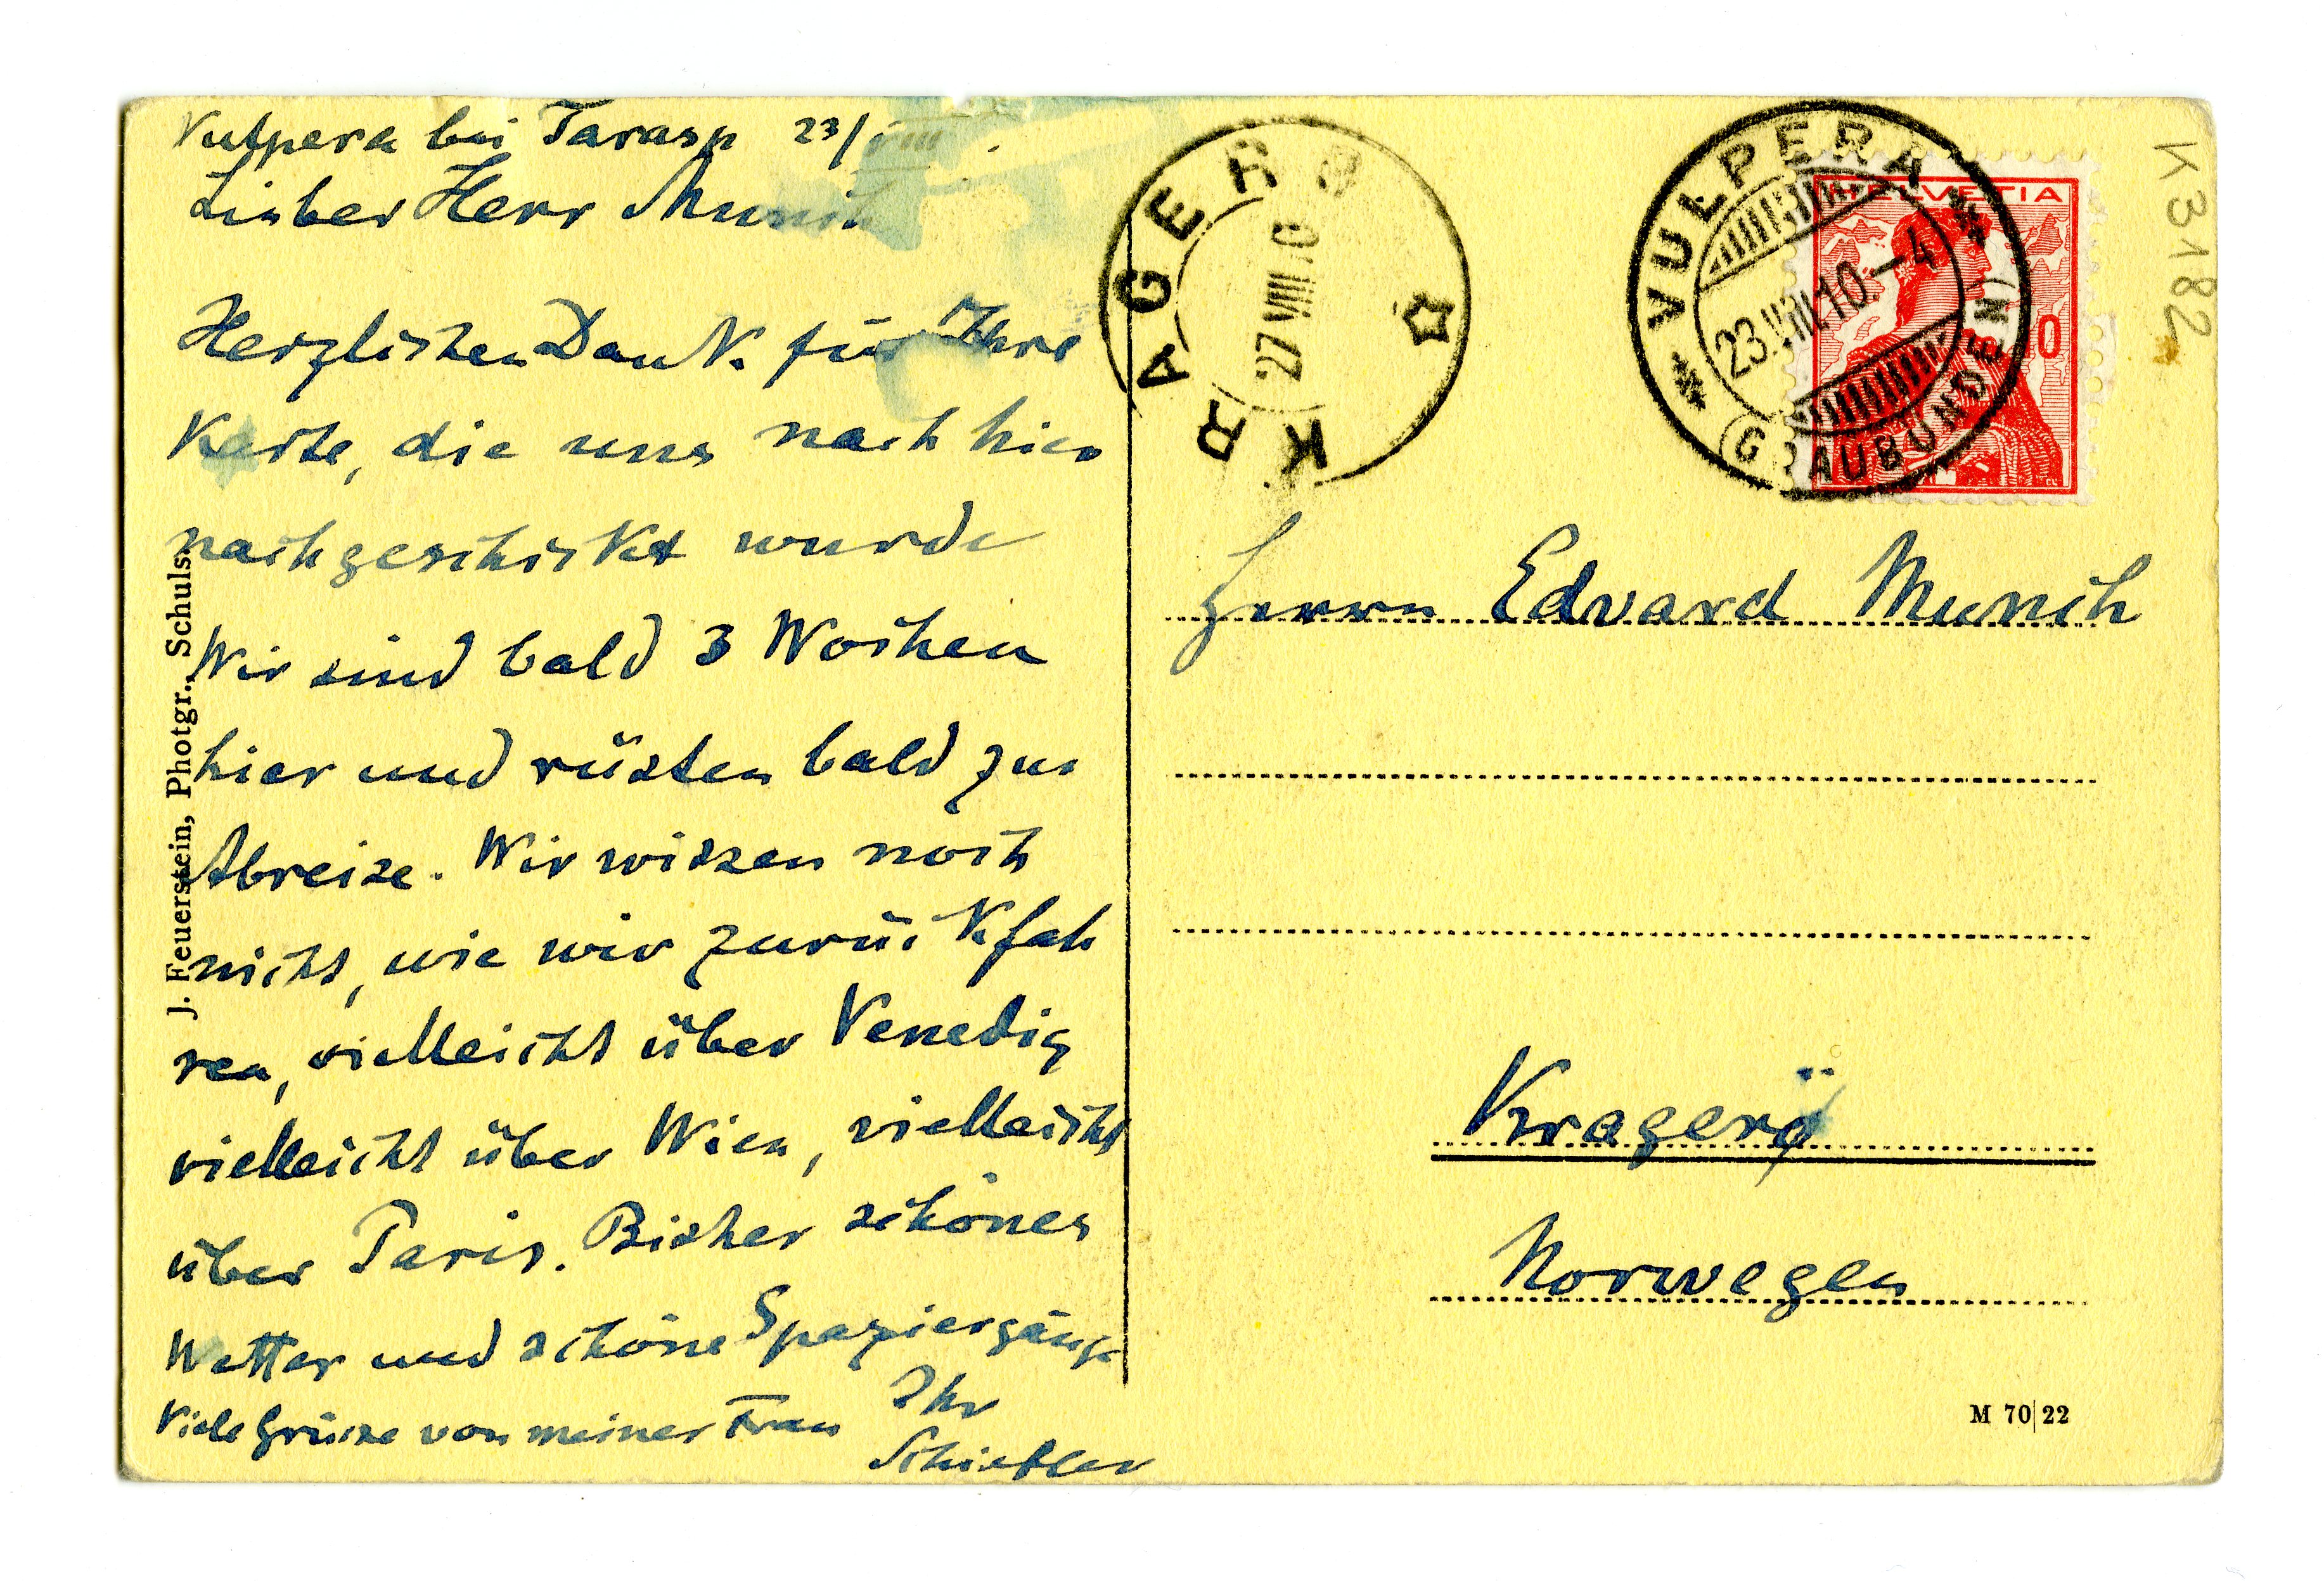 Vulpera bei Tarasp 23/VIII
Lieber Herr Munch
Herzlichen Dank für Ihre
Karte, die uns nach hier
nachgeschickt wurde
Wir sind bald 3 Wochen
hier und rüsten bald zur
Abreise. Wir wissen noch
nicht, wie wir zurückfah
ren, vielleicht über Venedig
vielleicht über Wien, vielleicht
über Paris. Bisher schönes
Wetter und schöne Spaziergänge
Viele Grüsse von meiner Frau
Ihr
Schiefler
J. Feuerstein, Photgr., Schuls.
KRAGERØ
27 VIII 10
VULPERA
23.VIII.10.–4
(GRAUBÜNDEN)
HELVETIA
K3182
Herrn Edvard Munch
Kragerö
Norwegen
M 70|22